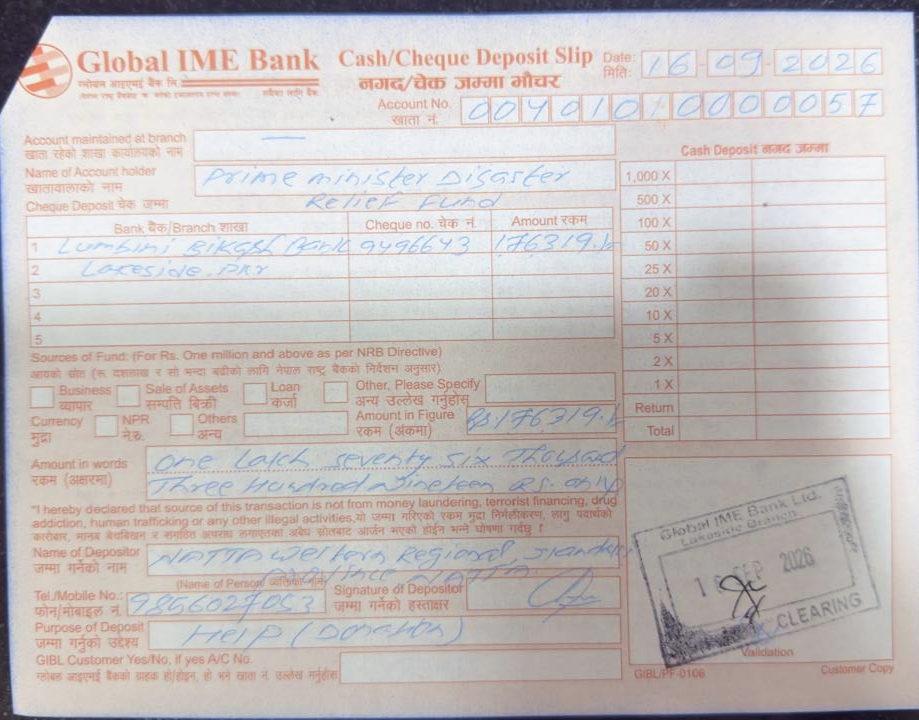 Global IME Bank
ग्लोबल आइएमई बैंक लि.
Cash/Cheque Deposit Slip
नगद/चेक जम्मा भौचर
Date: मिति: 16-09-2026
Account No. खाता नं. 00401010000057
Account maintained at branch —
खाता रहेको शाखा कार्यालयको नाम
Name of Account holder Prime minister Disaster
खातावालाको नाम Relief Fund
Cheque Deposit चेक जम्मा
Bank बैंक/Branch शाखा Cheque no. चेक नं. Amount रकम
1 Lumbini Bikash Bank 9496643 176319.
2 Lakeside.
3
4
5
Cash Deposit नगद जम्मा
1,000 X
500 X
100 X
50 X
25 X
20 X
10 X
5 X
2 X
1 X
Return
Total
Sources of Fund: (For Rs. One million and above as per NRB Directive)
आयको स्रोत (रू. दशलाख र सो भन्दा बढीको लागि नेपाल राष्ट्र बैंकको निर्देशन अनुसार)
Business व्यापार Sale of Assets सम्पति बिक्री Loan कर्जा Other, Please Specify अन्य उल्लेख गर्नुहोस्
Currency मुद्रा NPR ने.रु. Others अन्य Amount in Figure रकम (अंकमा) Rs. 176319.
Amount in words One Lakh seventy six Thousand
रकम (अक्षरमा) Three Hundred Nineteen Rs. only
"I hereby declared that source of this transaction is not from money laundering, terrorist financing, drug
addiction, human trafficking or any other illegal activities.
Name of Depositor NATTA Western Regional,
जम्मा गर्नेको नाम NATTA.
(Name of Person/
Tel./Mobile No.: फोन/मोबाइल नं. Signature of Depositor
जम्मा गर्नेको हस्ताक्षर
Purpose of Deposit Help (Donation)
जम्मा गर्नुको उद्देश्य
GIBL Customer Yes/No, if yes A/C No.
ग्लोबल आइएमई बैंकको ग्राहक हो/होइन, हो भने खाता नं. उल्लेख गर्नुहोस्
Global IME Bank Ltd.
Lakeside Branch
SEP 2026
CLEARING
Validation
GIBL/PF-0106
Customer Copy